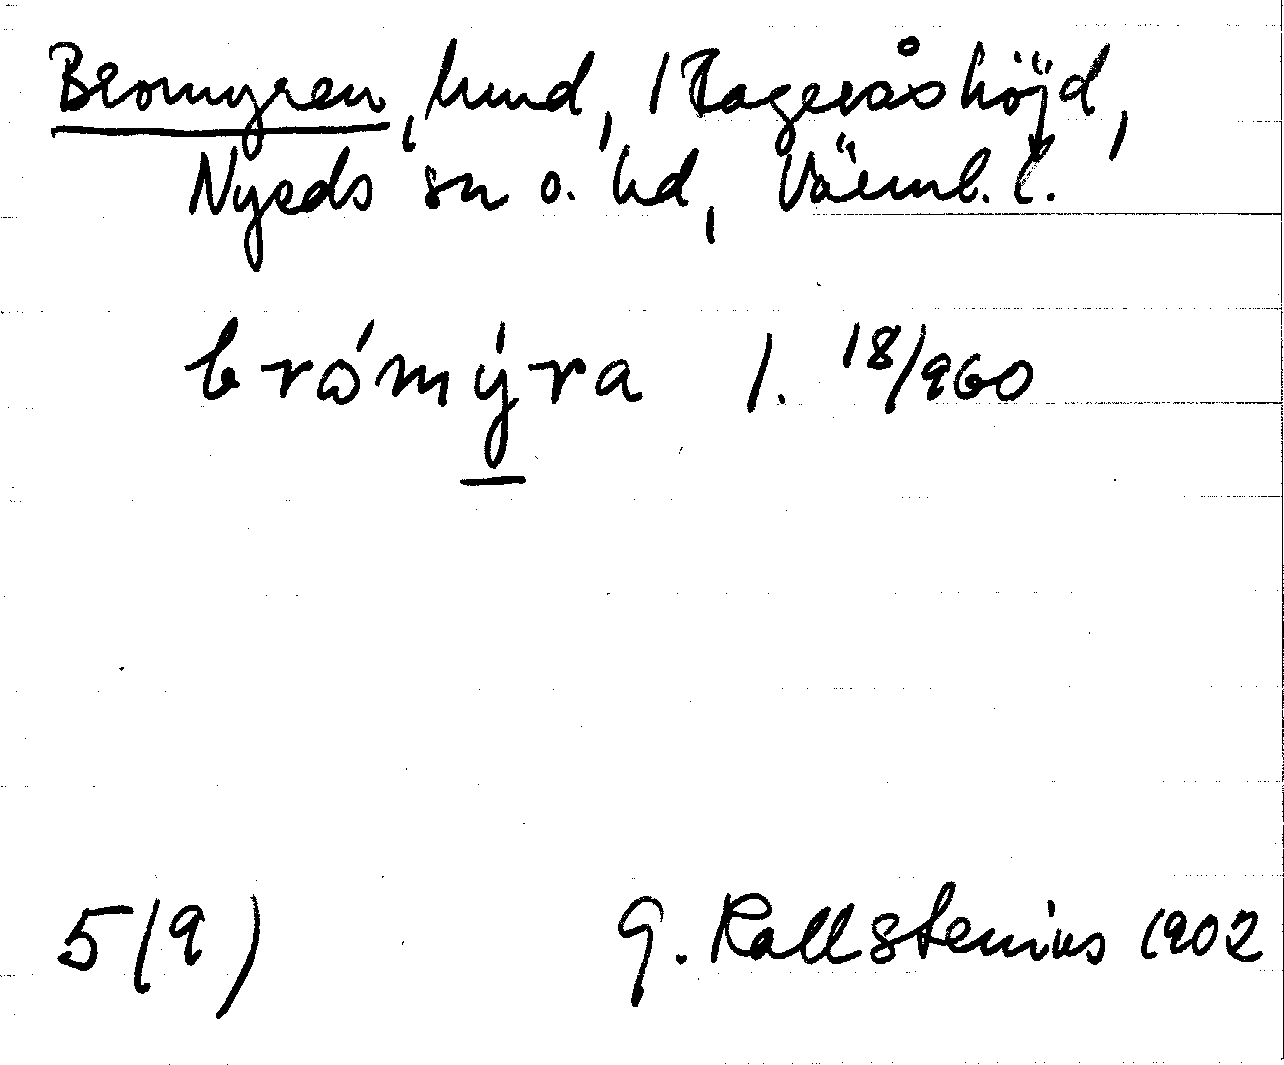 Bromyren, hmd, 1 Ragvaldshöjd,
Nyeds sn o. hd, Värml. l.
brómýra 1. 18/960
5(9) G. Kallstenius 1902